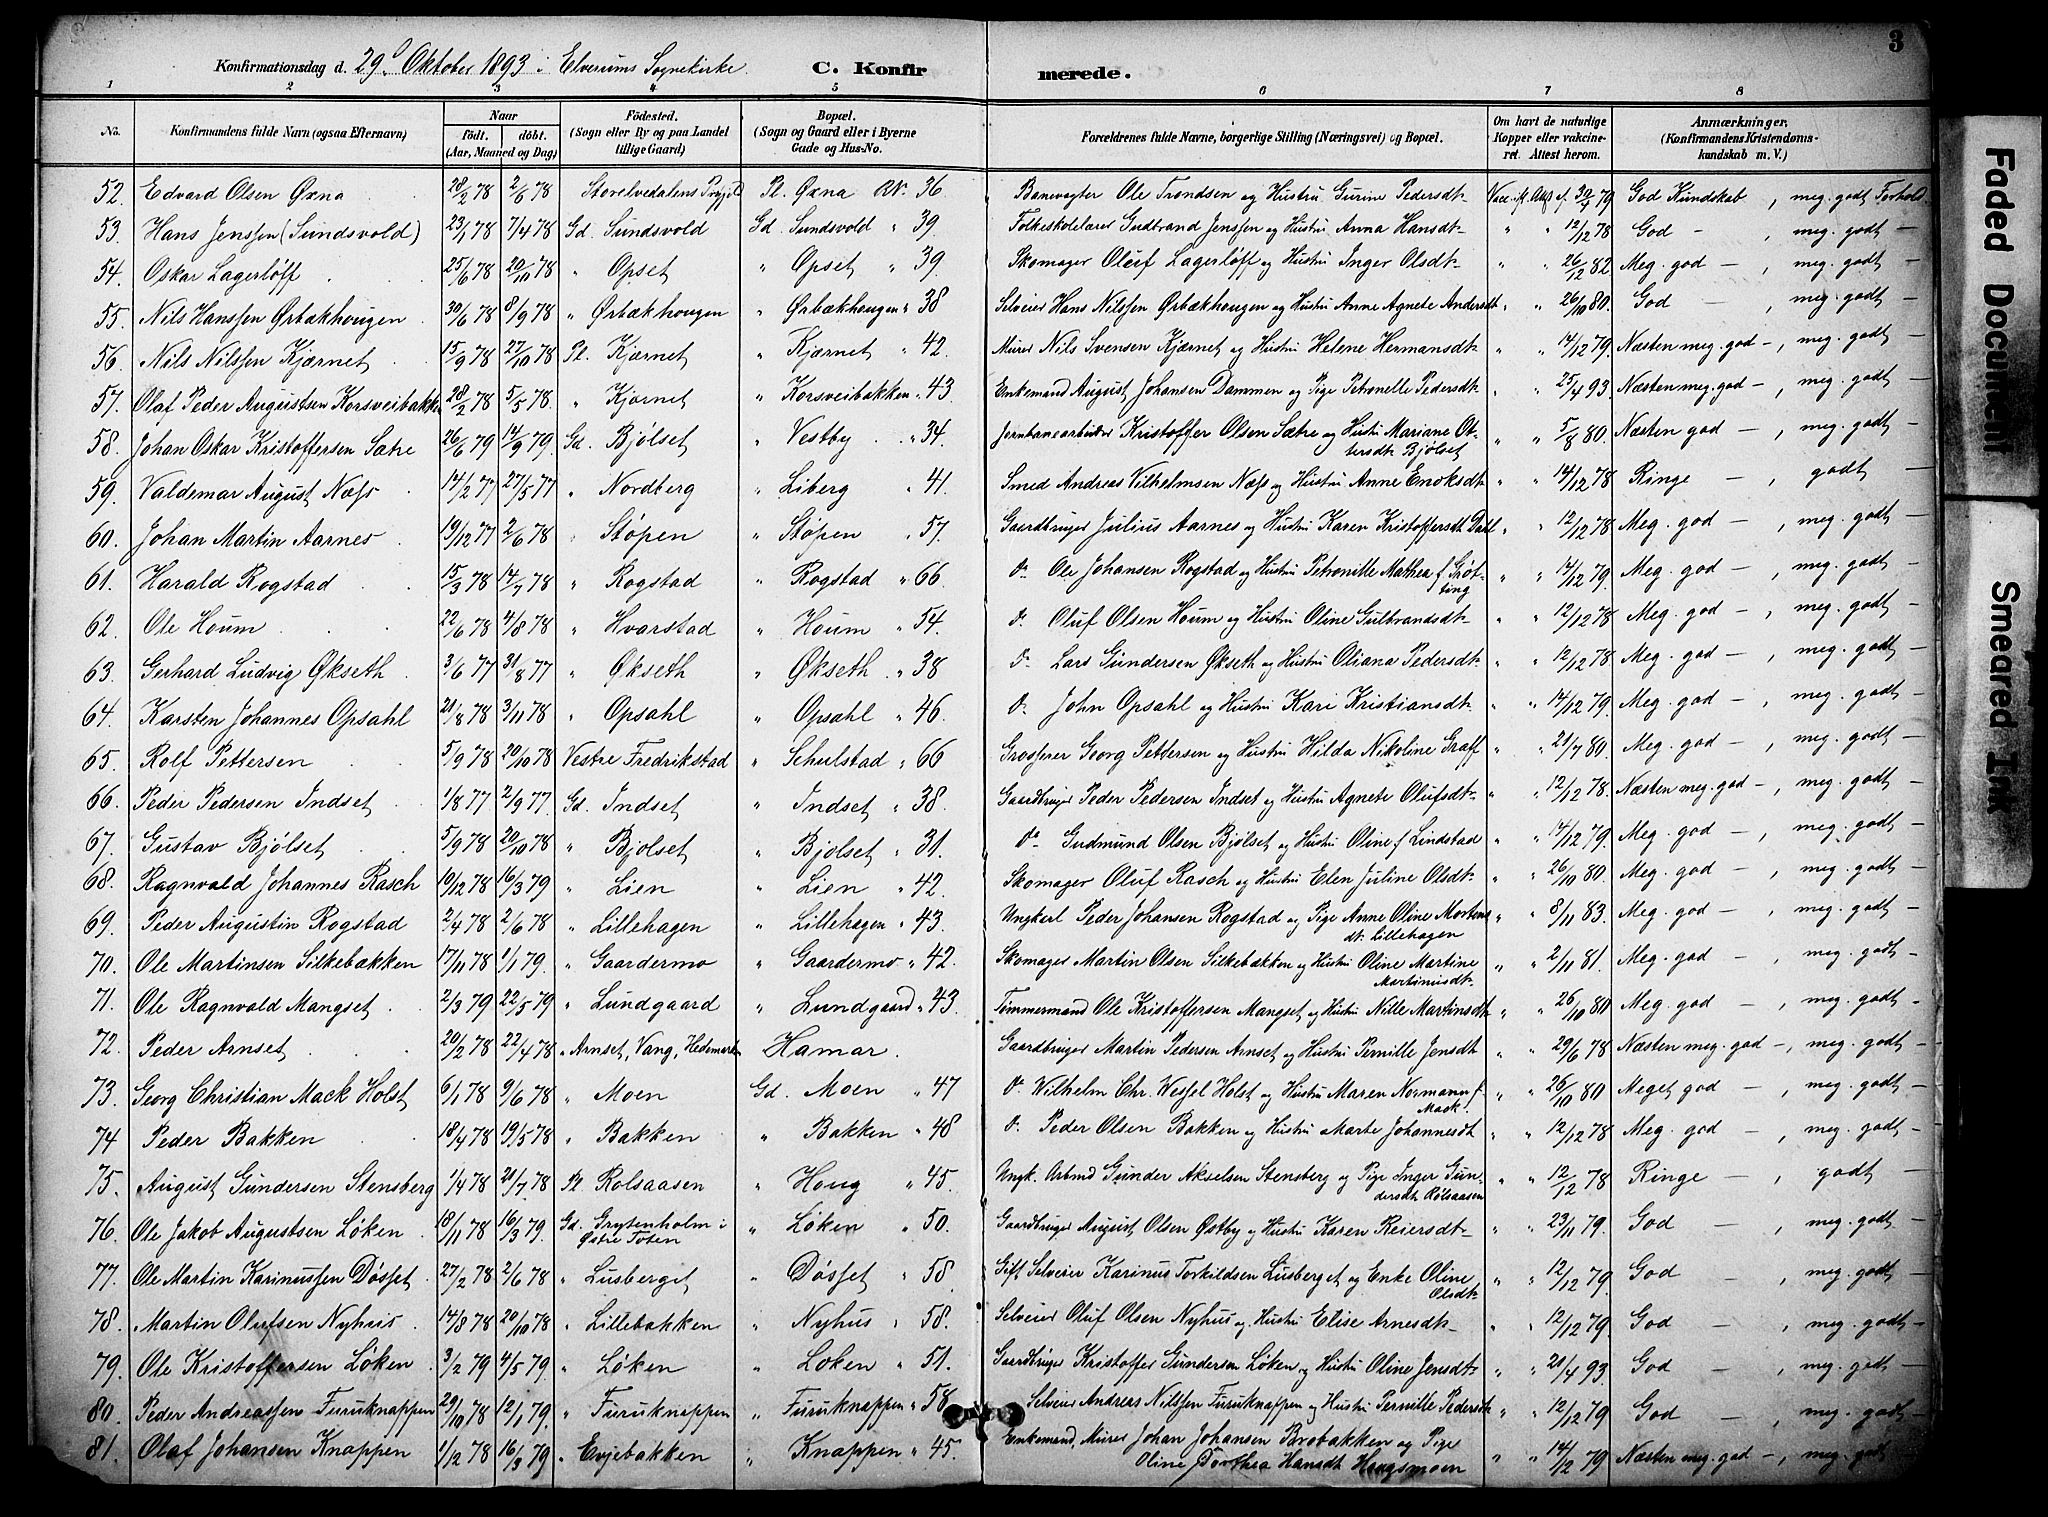 Konfirmationsdag d. 29de Oktober 1893 i Elverums Sognekirke. C. Konfir merede. 3
1 2 3 4 5 6 7 8
No. Konfirmandens fulde Navn (ogsaa Efternavn) Naar födt. döbt. (Aar, Maaned og Dag) Födested. (Sogn eller By og paa Landet tillige Gaard) Bopæl. (Sogn og Gaard eller i Byerne Gade og Hus-No. Forældrenes fulde Navne, borgerlige Stilling (Næringsvei) og Bopæl. Om havt de naturlige Kopper eller vakcineret. Attest herom. Anmærkninger, (Konfirmandens Kristendomskundskab m. V.)
52. Edvard Olsen Øxna 28/2 78 2/6 78 Storelvedalens Pl. Øxna RN. 36 Banevogter Ole Trondsen og Hustru Gurine Pedersdt. Vacc. 30/4 79 God Kundskab, meg. godt Forhold
53. Hans Jenssen (Sundsvold) 23/1 78 7/4 78 Gd. Sundsvold Gd. Sundsvold " 39 Folkeskolelærer Gudbrand Jenssen og Hustru Anna Hansdt. " " 12/12 78 God - , meg. godt -
54. Oskar Lagerløff 25/6 78 20/10 78 " Opset " Opset " 39. Skomager Oluf Lagerløff og Hustru Inger Olsdt. " " 26/12 82 Meg. god - , meg. godt -
55. Nils Hanssen Ørbækhougen 30/6 78 8/9 78 " Ørbækhougen " Ørbækhougen " 38 Selveier Hans Nilssen Ørbækhougen og Hustru Anne Agnete Andersdt. " " 26/10 80. God - , meg. godt -
56. Nils Nilssen Kjærnet 15/9 78 27/10 78 Pl. Kjærnet " Kjærnet " 42. Murer Nils Svensen Kjærnet og Hustru Helene Hermansdt. " " 14/12 79. Næsten meg. god -, meg. godt -
57. Olaf Peder Augustsen Korsveibakken 28/2 78 5/5 78. " Kjærnet " Korsveibakken " 43 Enkemand August Johansen Dammen og Pige Petronelle Pedersdt. " " 25/4 93 Næsten meg. god -, meg. godt -
58. Johan Oskar Kristoffersen Sætre 26/6 79 14/9 79. Gd. Bjølset " Vestby " 34. Jernbanearbeider Kristoffer Olsen Sætre og Hustru Mariane Ottersdt. Bjølset " " 5/8 80. Næsten god -, meg. godt -
59. Valdemar August Næss 14/2 77 27/5 77 " Nordberg " Liberg " 41. Smed Andreas Vilhelmsen Næss og Hustru Anne Enoksdt. " " 14/12 78 Ringe - , godt -
60. Johan Martin Aarnes 19/12 77 2/6 78 " Støpen " Støpen " 57. Gaardbruger Julius Aarnes og Hustru Karen Kristoffersdt. Dahl " " 12/12 78 Meg. god -, meg. godt -
61. Harald Rogstad 15/3 78 14/7 78 " Rogstad " Rogstad " 66. Do. Ole Johansen Rogstad og Hustru Petronille Mathea f. Grøtting " " 14/12 79. Meg. god -, meg. godt -
62. Ole Houm 22/6 78 4/8 78 " Hvarstad " Houm " 54. Do. Oluf Olsen Houm og Hustru Oline Gulbrandsdt. " " 12/12 78 Meg. god -, meg. godt -
63. Gerhard Ludvig Økseth 3/6 77 31/8 77 " Økseth " Økseth " 38 Do. Lars Gundersen Økseth og Hustru Oliana Pedersdt. " " 12/12 78 Meg. god -, meg. godt -
64. Karsten Johannes Opsahl 21/8 78 3/11 78 " Opsahl " Opsahl " 46. Do. John Opsahl og Hustru Kari Kristiansdt. " " 14/12 79. Meg. god -, meg. godt -
65. Rolf Pettersen 5/9 78 20/10 78 Vestre Fredrikstad " Schulstad " 66 Grosserer Georg Pettersen og Hustru Hilda Nikoline Graff " " 21/7 80. Meg. god -, meg. godt -
66. Peder Pedersen Indset 1/8 77 2/9 77. Gd. Indset " Indset " 38. Gaardbruger Peder Pedersen Indset og Hustru Agnete Olufsdt. " " 12/12 78. Næsten meg. god -, meg. godt -
67. Gustav Bjølset 5/9 78 20/10 78 " Bjølset " Bjølset " 31. Do. Gudmund Olsen Bjølset og Hustru Oline f. Lindstad " " 14/12 79. Meg. god -, meg. godt -
68. Ragnvald Johannes Rasch 19/12 78 16/3 79 " Lien " Lien " 42 Skomager Oluf Rasch og Hustru Elen Juline Olsdt. " " 26/10 80. Meg. god -, meg. godt -
69. Peder Augustin Rogstad 2/4 78 2/6 78 " Lillehagen " Lillehagen " 43. Ungkarl Peder Johansen Rogstad og Pige Anne Oline Mortensdt. Lillehagen " " 8/11 83. Meg. god -, meg. godt -
70. Ole Martinsen Silkebækken 17/11 78 1/1 79. " Gaardermo " Gaardermo " 42. Skomager Martin Olsen Silkebækken og Hustru Oline Martine Martinusdt. " " 2/11 81. Meg. god -, meg. godt -
71. Ole Ragnvald Mangset 2/3 79 22/5 79 " Lundgaard " Lundgaard " 43. Tømmermand Ole Kristoffersen Mangset og Hustru Nille Martinsdt. " " 26/10 80 Meg. god -, meg. godt -
72. Peder Arnset 20/2 78 22/4 78 " Arnset, Vang, Hedemarken Hamar. Gaardbruger Martin Pedersen Arnset og Hustru Pernille Jensdt " " 29/6 78 Næsten meg. god -, meg. godt -
73. Georg Christian Mack Holst 6/1 78 9/6 78 " Moen Gd. Moen " 47 Do. Wilhelm Chr. Wessel Holst og Hustru Maren Normann f. Mack. " " 26/10 80 Meget god -, meg. godt -
74 Peder Bakken 18/4 78 19/5 78 " Bakken " Bakken " 48 Do. Peder Olsen Bakken og Hustru Marte Johannesdt " " 12/12 78 Meg. god -, meg. godt -
75. August Gundersen Stensberg 1/4 78 21/7 78 Pl. Rolsaasen " Houg " 45. Ungk. Arbmd Gunder Akselsen Stensberg og Pige Inger Gundersdt. Rolsaasen " " 12/12 78 Ringe - , godt -
76. Ole Jakob Augustsen Løken 18/11 78 16/3 79. Gd. Grytenholm i Østre Toten " Løken " 50. Gaardbruger August Olsen Østby og Hustru Karen Reiersdt. " " 23/11 79. God - , meg. godt -
77. Ole Martin Karinussen Døsset 27/2 78 2/6 78 " Lusberget " Døsset " 58. Gift Selveier Karinus Torkildsen Lusberget og Enke Oline Olsdt. " " 12/12 79. God - , meg. godt -
78. Martin Olufsen Nyhus 14/8 78 20/10 78 " Lillebakken " Nyhus " 58. Selveier Oluf Olsen Nyhus og Hustru Elise Arnesdt. " " 12/12 79. God - , meg. godt -
79. Ole Kristoffersen Løken 3/2 79 4/5 79. " Løken " Løken " 51. Gaardbruger Kristoffer Gundersen Løken og Hustru Oline Jensdt. " " 21/4 93 God - , meg. godt -
80. Peder Andreassen Furuknappen 29/10 78 12/1 79. " Furuknappen " Furuknappen " 58 Selveier Andreas Nilssen Furuknappen og Hustru Pernille Pedersdt. " " 12/12 79 God - , meg. godt -
81. Olaf Johansen Knappen 1/12 78 16/3 79 " Evjebakken " Knappen " 45. Enkemand, Murer Johan Johansen Brobakken og Pige Oline Dorthea Hansdt Haugsmoen " " 14/12 79 Næsten meg. god -, meg. godt -
Faded Document
Smeared Ink